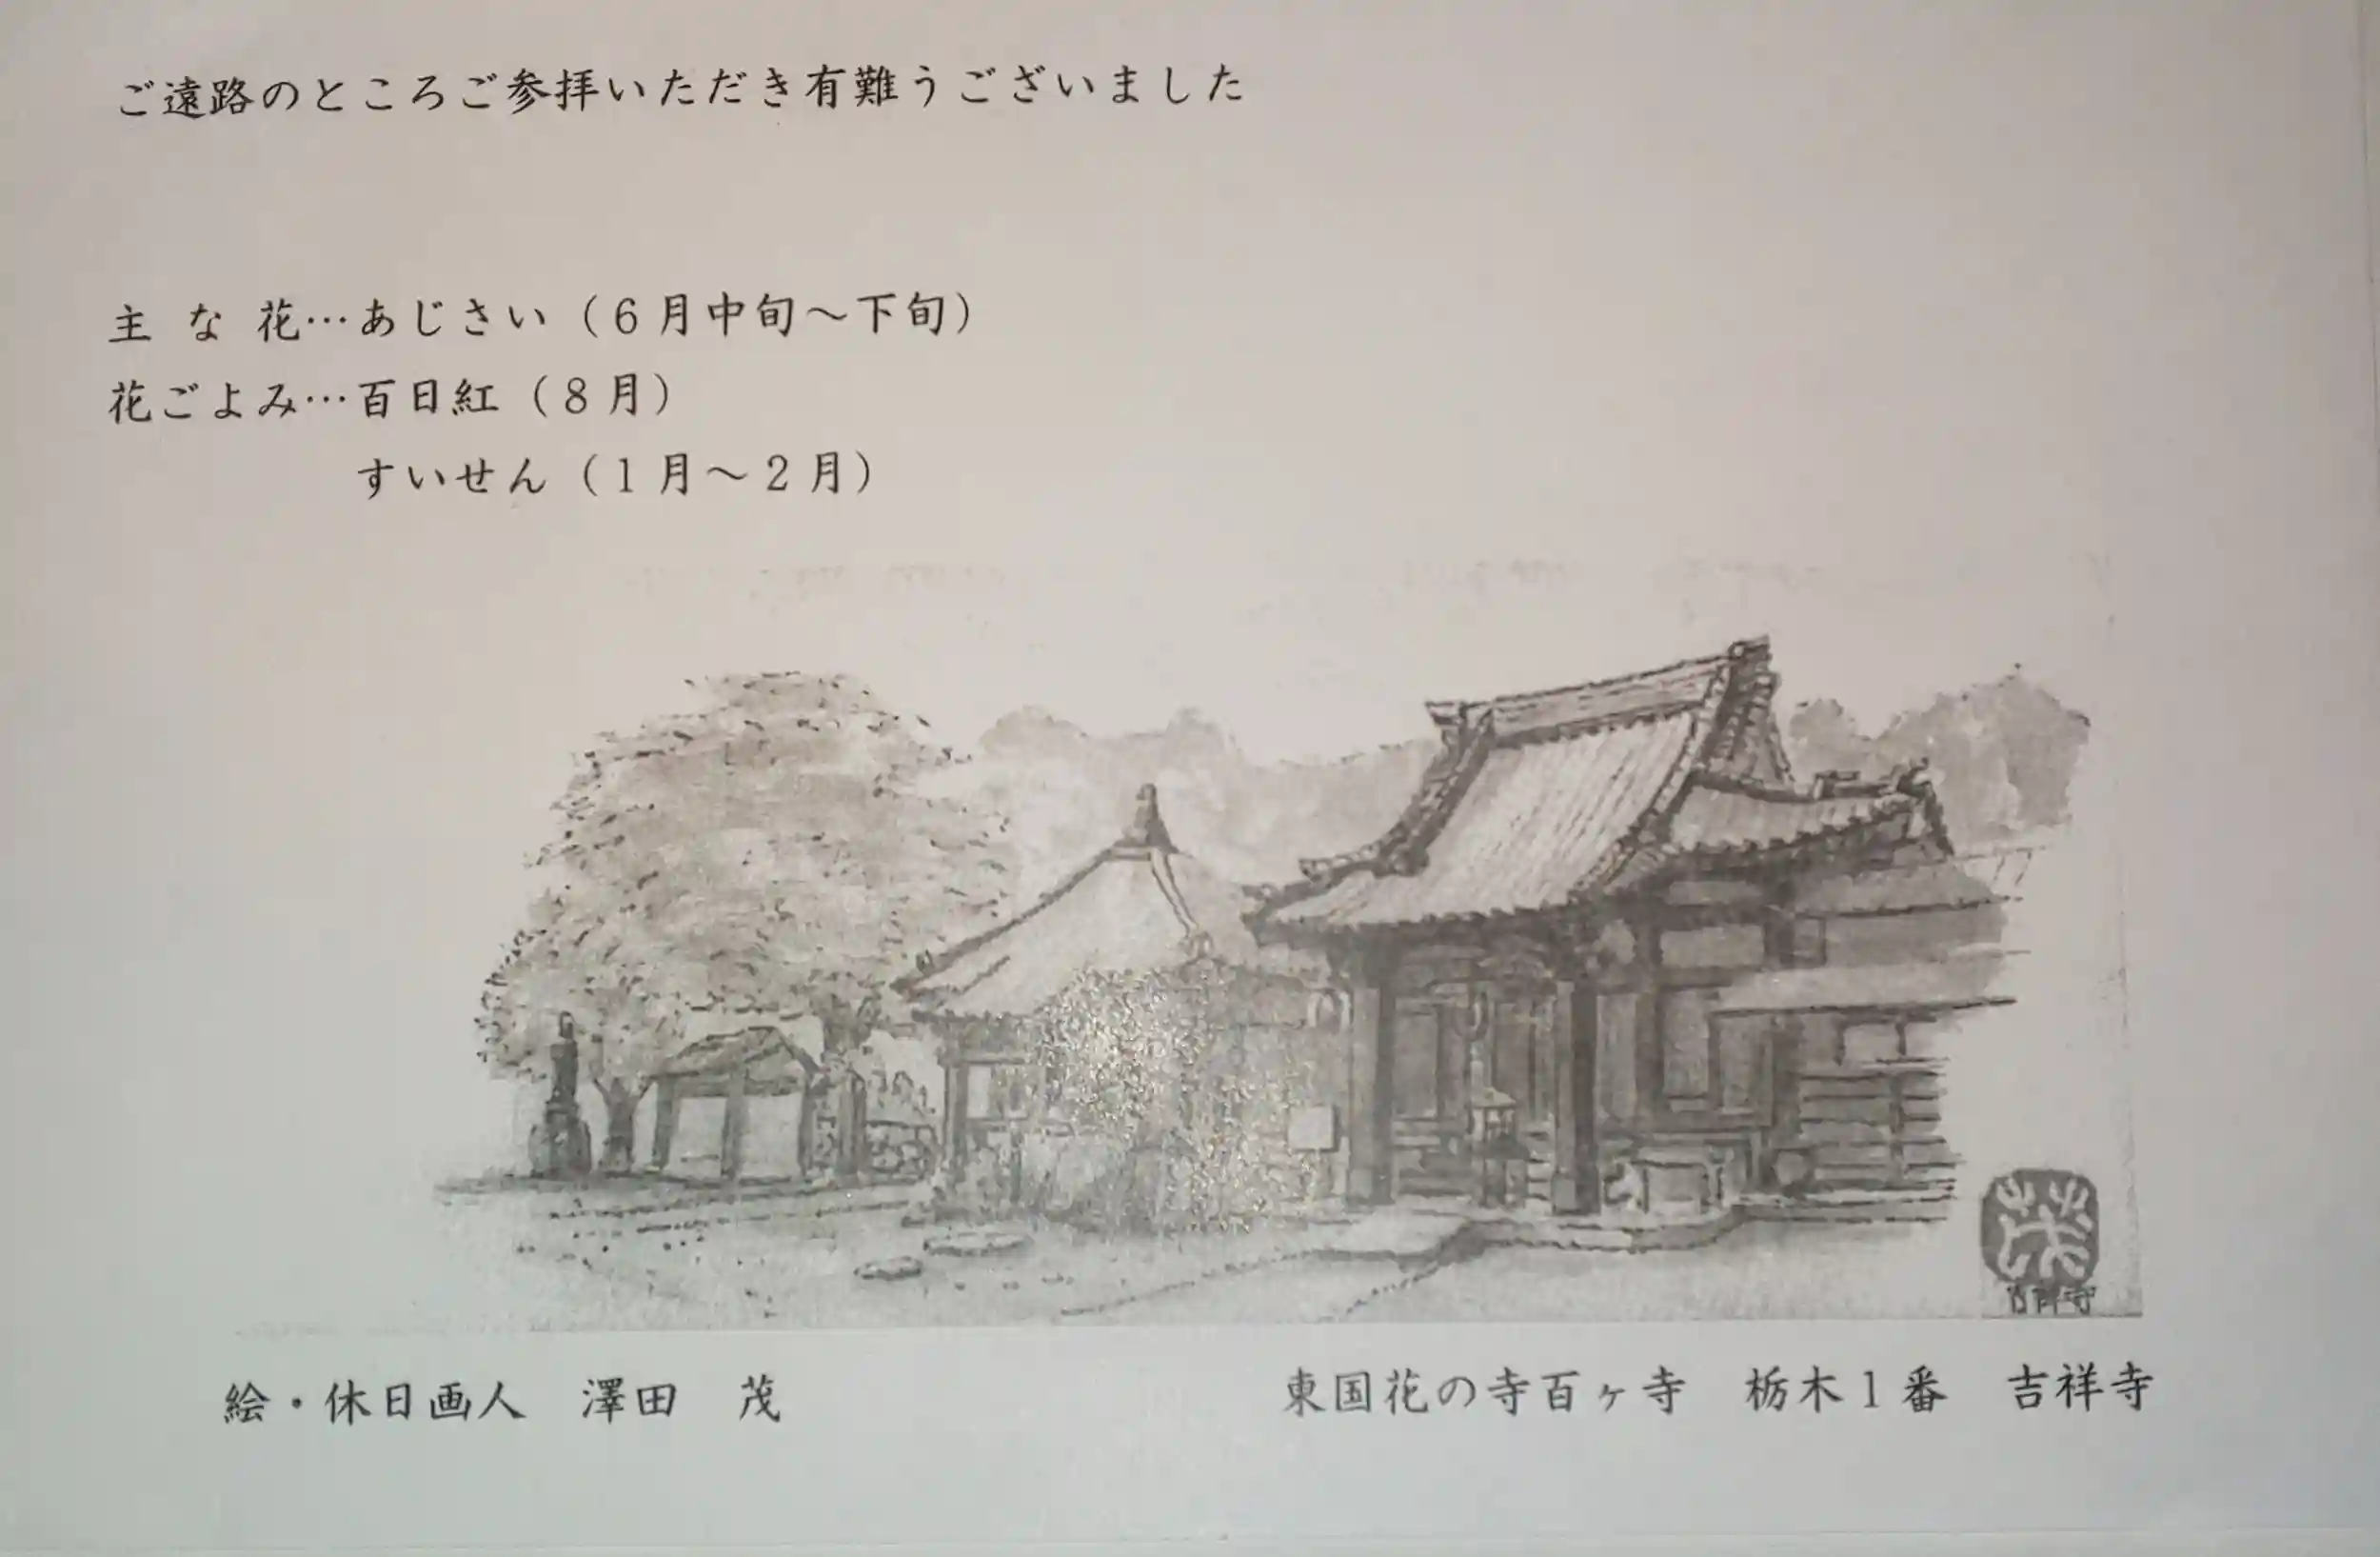 ご遠路のところご参拝いただき有難うございました
主 な 花…あじさい（6月中旬～下旬）
花ごよみ…百日紅（8月）
すいせん（1月～2月）
吉祥寺
絵・休日画人　澤田　茂
東国花の寺百ヶ寺　栃木1番　吉祥寺